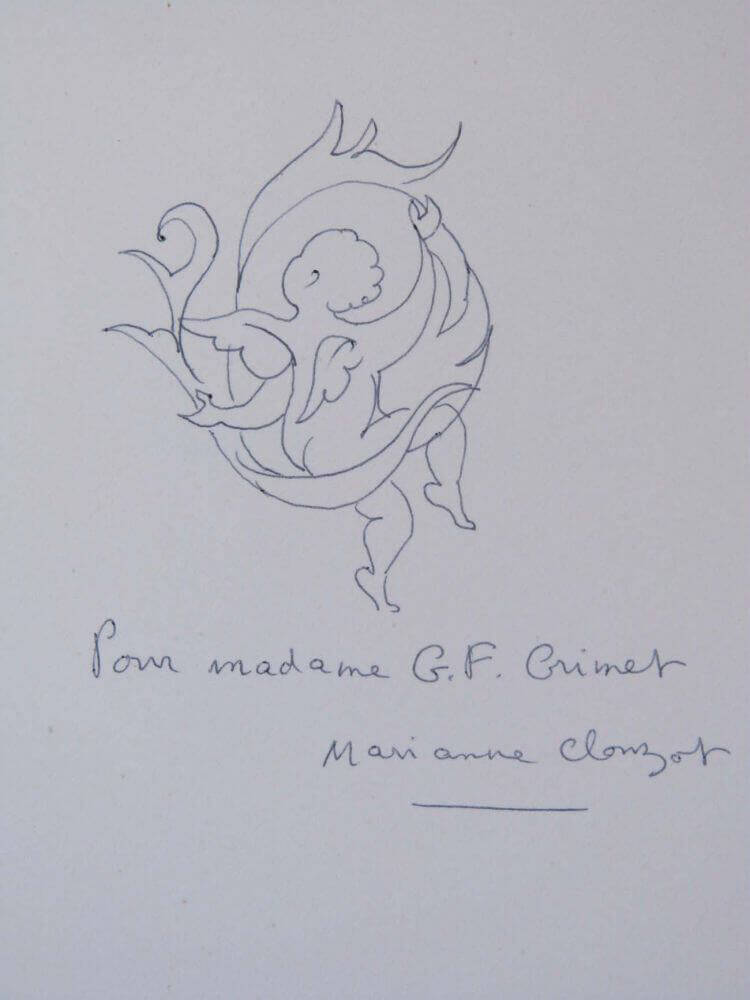 Pour madame G.F. Grimet
Marianne Clouzot